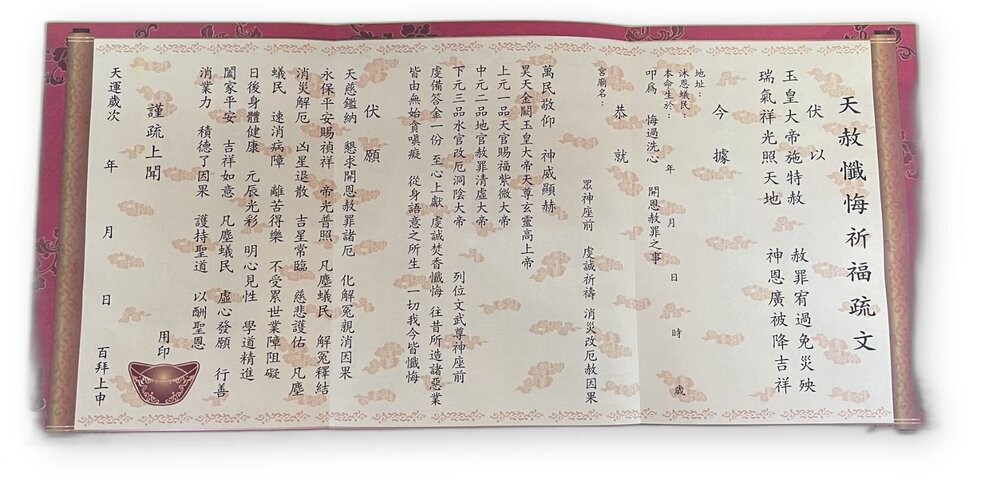 天赦懺悔祈福疏文
伏以
玉皇大帝施特赦 赦罪宥過免災殃
瑞氣祥光照天地 神恩廣被降吉祥
今據
地址：
沐恩蟻民：
本命生於： 年 月 日 時 歲
叩為 悔過洗心 開恩赦罪之事
恭就
宮廟名： 眾神座前 虔誠祈禱 消災改厄赦因果
萬民敬仰 神威顯赫
昊天金闕玉皇大帝天尊玄靈高上帝
上元一品天官賜福紫微大帝
中元二品地官赦罪清虛大帝
下元三品水官改厄洞陰大帝 列位文武尊神座前
虔備答金一份 至心上獻 虔誠焚香懺悔 往昔所造諸惡業
皆由無始貪嗔癡 從身語意之所生 一切我今皆懺悔
伏願
天慈鑑納 懇求開恩赦罪諸厄 化解冤親消因果
永保平安賜禎祥 帝光普照 凡塵蟻民 解冤釋結
消災解厄 凶星退散 吉星常臨 慈悲護佑 凡塵
蟻民 速消病障 離苦得樂 不受累世業障阻礙
日後身體健康 元辰光彩 明心見性 學道精進
闔家平安 吉祥如意 凡塵蟻民 虛心發願 行善
消業力 積德了因果 護持聖道 以酬聖恩
謹疏上聞
用印
天運歲次 年 月 日 百拜上申